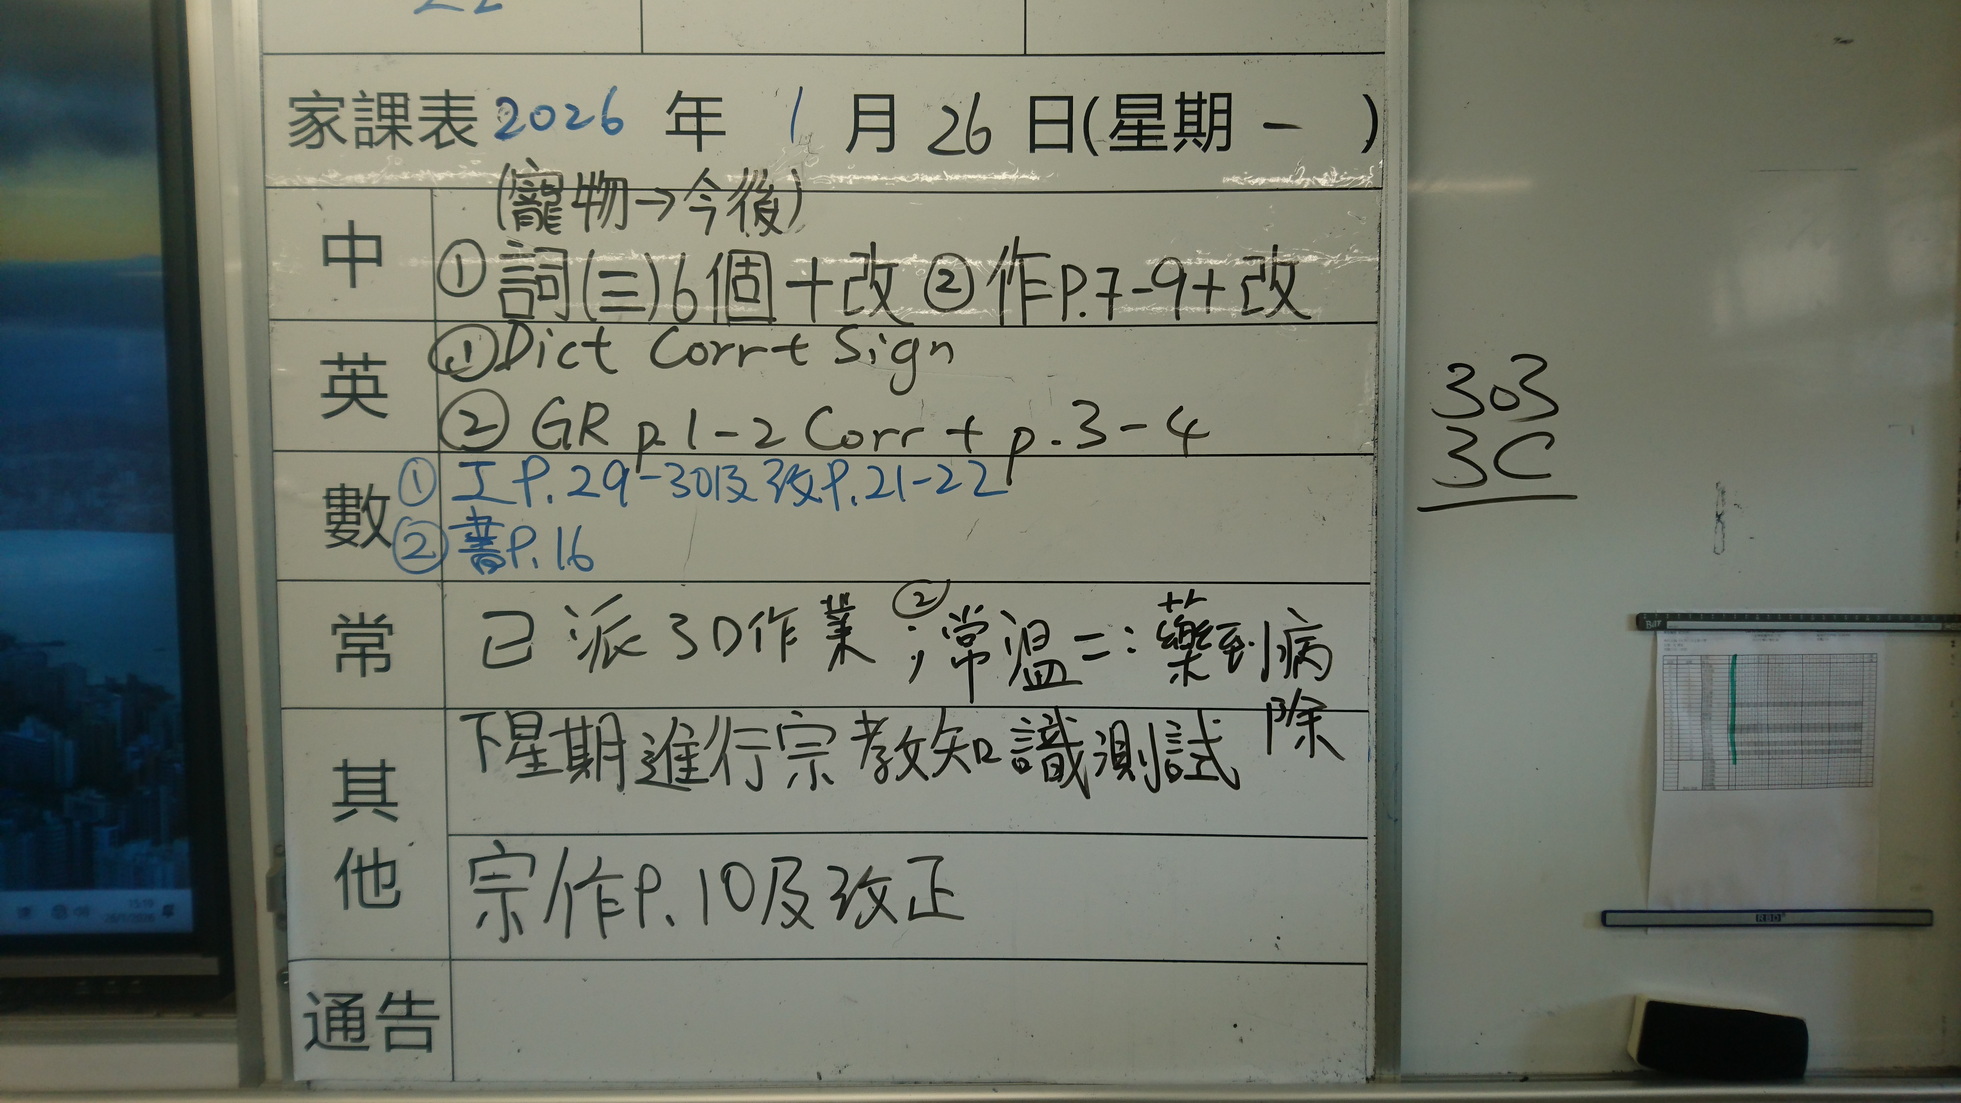 家課表 2026 年 1 月 26 日(星期 一 )
(寵物→今後)
中 ①詞(三)6個+改 ②作P.7-9+改
英 ①Dict Corr + Sign
② GR p.1-2 Corr + p.3-4
數 ① 工P.29-30及改P.21-22
② 書P.16
常 已派3D作業 ②;常溫二:藥到病
除
其他 下星期進行宗教知識測試
宗作P.10及改正
通告
303
3C